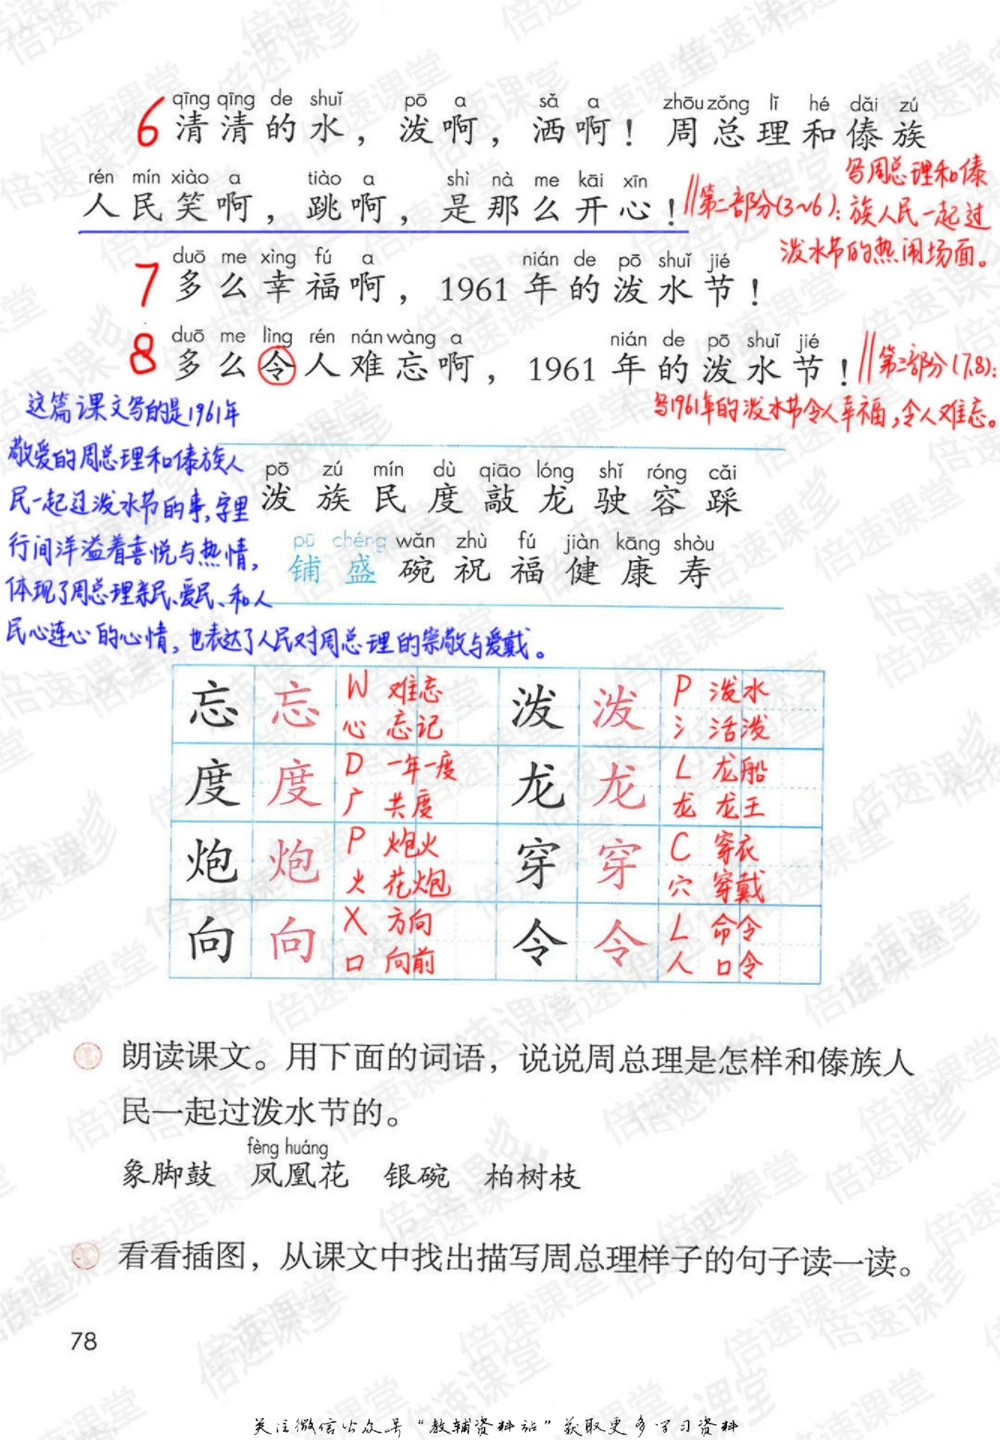 qīng qīng de shuǐ pō a sǎ a zhōu zǒng lǐ hé dǎi zú
6 清清的水，泼啊，洒啊！周总理和傣族
rén mín xiào a tiào a shì nà me kāi xīn
人民笑啊，跳啊，是那么开心！
//第二部分(3~6)：写周总理和傣
族人民一起过
泼水节的热闹场面。
duō me xìng fú a nián de pō shuǐ jié
7 多么幸福啊，1961年的泼水节！
duō me lìng rén nán wàng a nián de pō shuǐ jié
8 多么令人难忘啊，1961年的泼水节！
//第三部分(7、8)：
写1961年的泼水节令人幸福，令人难忘。
这篇课文写的是1961年
敬爱的周总理和傣族人
民一起过泼水节的事，字里
行间洋溢着喜悦与热情，
体现了周总理亲民、爱民、和人
民心连心的心情，也表达了人民对周总理的崇敬与爱戴。
pō zú mín dù qiāo lóng shǐ róng cǎi
泼 族 民 度 敲 龙 驶 容 踩
pū chéng wǎn zhù fú jiàn kāng shòu
铺 盛 碗 祝 福 健 康 寿
忘 忘 W 难忘 泼 泼 P 泼水
心 忘记 氵 活泼
度 度 D 一年一度 龙 龙 L 龙船
广 共度 龙 龙王
炮 炮 P 炮火 穿 穿 C 穿衣
火 花炮 穴 穿戴
向 向 X 方向 令 令 L 命令
口 向前 人 口令
朗读课文。用下面的词语，说说周总理是怎样和傣族人
民一起过泼水节的。
fèng huáng
象脚鼓 凤凰花 银碗 柏树枝
看看插图，从课文中找出描写周总理样子的句子读一读。
78
关注微信公众号“教辅资料站”获取更多学习资料
倍速课堂